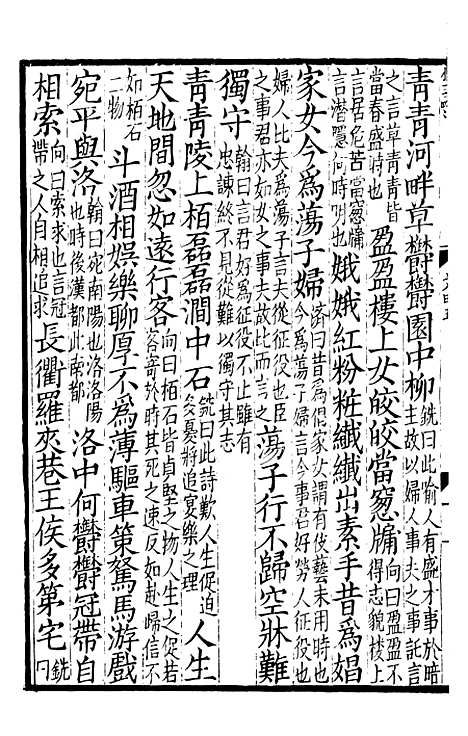 青青河畔草欝欝園中柳銑曰此喻人有盛才事於暗主故以婦人事夫之事託言
之言草青青皆當春盛時也盈盈樓上女皎皎當窓牖向曰盈盈不得志皃樓上
言居危苦當窓牖言潛隱何時明也娥娥紅粉粧纖纖出素手昔爲娼
家女今爲蕩子婦濟曰昔爲倡家女謂有伎藝未用時也今爲蕩子婦言今事君好勞人征役也
婦人比夫爲蕩子言夫從征役也臣之事君亦如女之事夫故比而言之蕩子行不歸空牀難
獨守翰曰言君好爲征役不止雖有忠諫終不見從難以獨守其志
青青陵上栢磊磊澗中石銑曰此詩歎人生促迫多憂將追宴樂之理人生
天地間忽如遠行客向曰栢石皆貞堅之物人生之促若客寄於時其死之速反如赴歸信不
如栢石二物斗酒相娛樂聊厚不爲薄驅車策駑馬游戲
宛平與洛翰曰宛南陽也洛洛陽也時後漢都此南都洛中何欝欝冠帶自
相索向曰索求也言冠帶之人自相追求長衢羅夾巷王侯多第宅銑曰